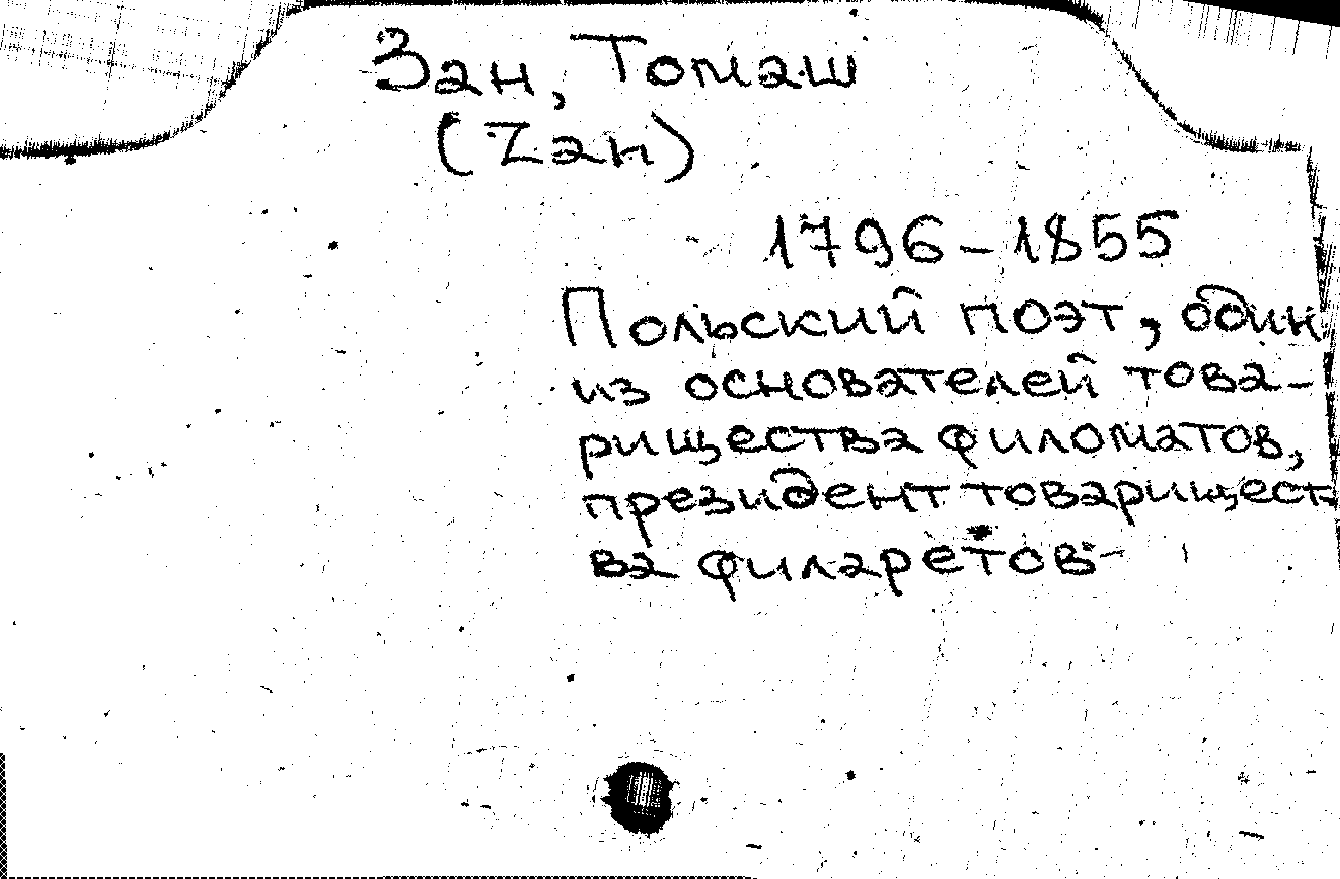 Зан, Томаш
(Zан)
1796–1855
Польский поэт, один
из основателей това-
рищества филоматов,
президент товарищест
ва филаретов